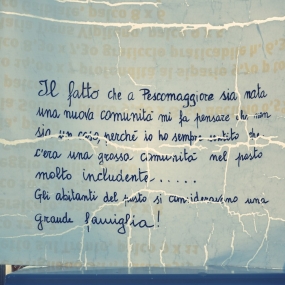 Il fatto che a Pescomaggiore sia nata
una nuova comunità mi fa pensare che non
sia un caso, perché io ho sempre sentito che
c'era una grossa comunità nel posto
molto includente......
Gli abitanti del posto si consideravano una
grande famiglia!